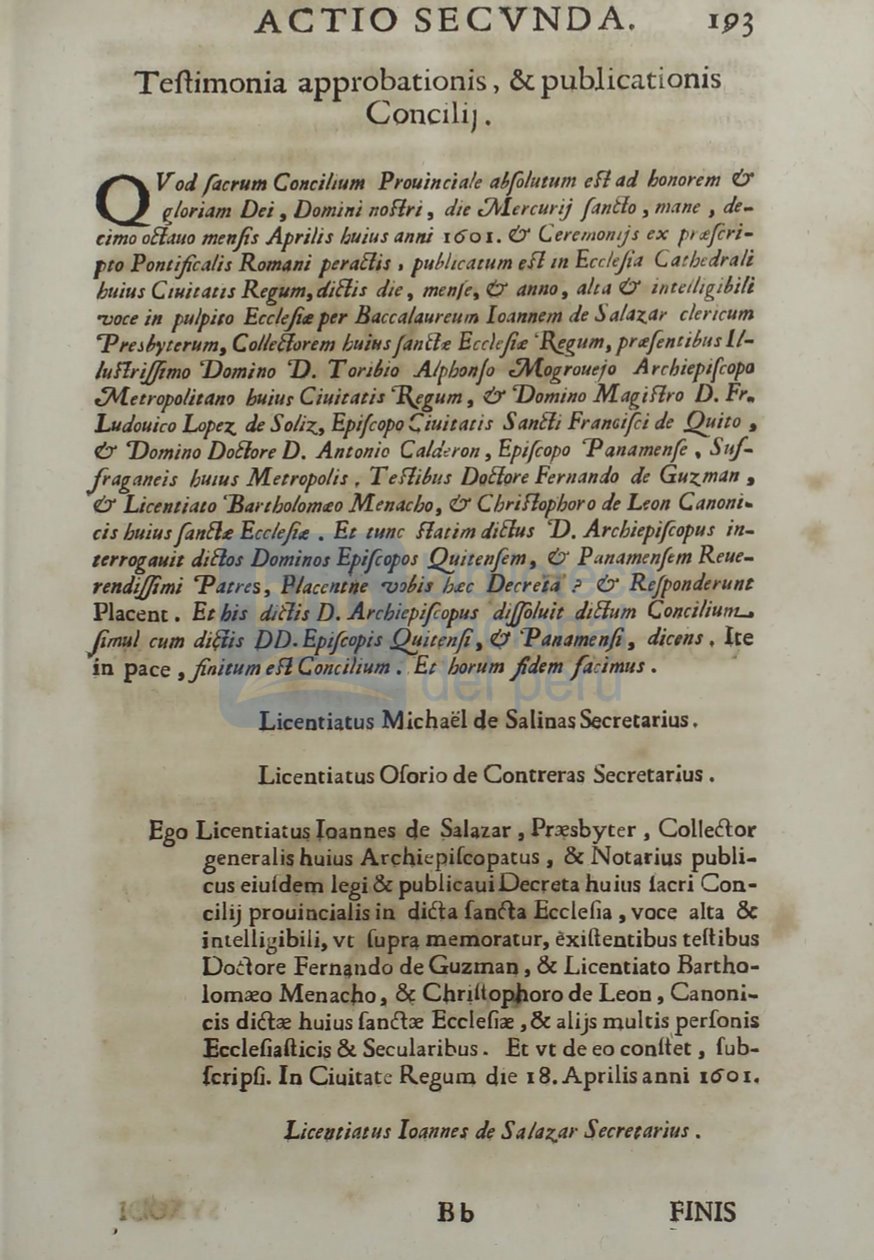 ACTIO SECVNDA. 193
Teſtimonia approbationis, & publicationis
Concilij.
QVod ſacrum Concilium Prouinciale abſolutum eſt ad honorem &
gloriam Dei, Domini noſtri, die Mercurij ſancto, mane, de-
cimo octauo menſis Aprilis huius anni 1601. & Ceremonijs ex præſcri-
pto Pontificalis Romani peractis, publicatum eſt in Eccleſia Cathedrali
huius Ciuitatis Regum, dictis die, menſe, & anno, alta & intelligibili
voce in pulpito Eccleſiæ per Baccalaureum Ioannem de Salazar clericum
Presbyterum, Collectorem huius ſanctæ Eccleſiæ Regum, præſentibus Il-
luſtriſſimo Domino D. Toribio Alphonſo Mogrouejo Archiepiſcopo
Metropolitano huius Ciuitatis Regum, & Domino Magiſtro D. Fr.
Ludouico Lopez de Soliz, Epiſcopo Ciuitatis Sancti Franciſci de Quito,
& Domino Doctore D. Antonio Calderon, Epiſcopo Panamenſe, Suf-
fraganeis huius Metropolis. Teſtibus Doctore Fernando de Guzman,
& Licentiato Bartholomæo Menacho, & Chriſtophoro de Leon Canoni-
cis huius ſanctæ Eccleſiæ. Et tunc ſtatim dictus D. Archiepiſcopus in-
terrogauit dictos Dominos Epiſcopos Quitenſem, & Panamenſem Reue-
rendiſſimi Patres, Placentne vobis hæc Decreta? & Reſponderunt
Placent. Et his dictis D. Archiepiſcopus diſſoluit dictum Concilium,
ſimul cum dictis DD. Epiſcopis Quitenſi, & Panamenſi, dicens, Ite
in pace, finitum eſt Concilium. Et horum fidem facimus.
del perú
Licentiatus Michaël de Salinas Secretarius.
Licentiatus Oſorio de Contreras Secretarius.
Ego Licentiatus Ioannes de Salazar, Præsbyter, Collector
generalis huius Archiepiſcopatus, & Notarius publi-
cus eiuſdem legi & publicaui Decreta huius ſacri Con-
cilij prouincialis in dicta ſancta Eccleſia, voce alta &
intelligibili, vt ſupra memoratur, exiſtentibus teſtibus
Doctore Fernando de Guzman, & Licentiato Bartho-
lomæo Menacho, & Chriſtophoro de Leon, Canoni-
cis dictæ huius ſanctæ Eccleſiæ, & alijs multis perſonis
Eccleſiaſticis & Secularibus. Et vt de eo conſtet, ſub-
ſcripſi. In Ciuitate Regum die 18. Aprilis anni 1601.
Licentiatus Ioannes de Salazar Secretarius.
Bb FINIS